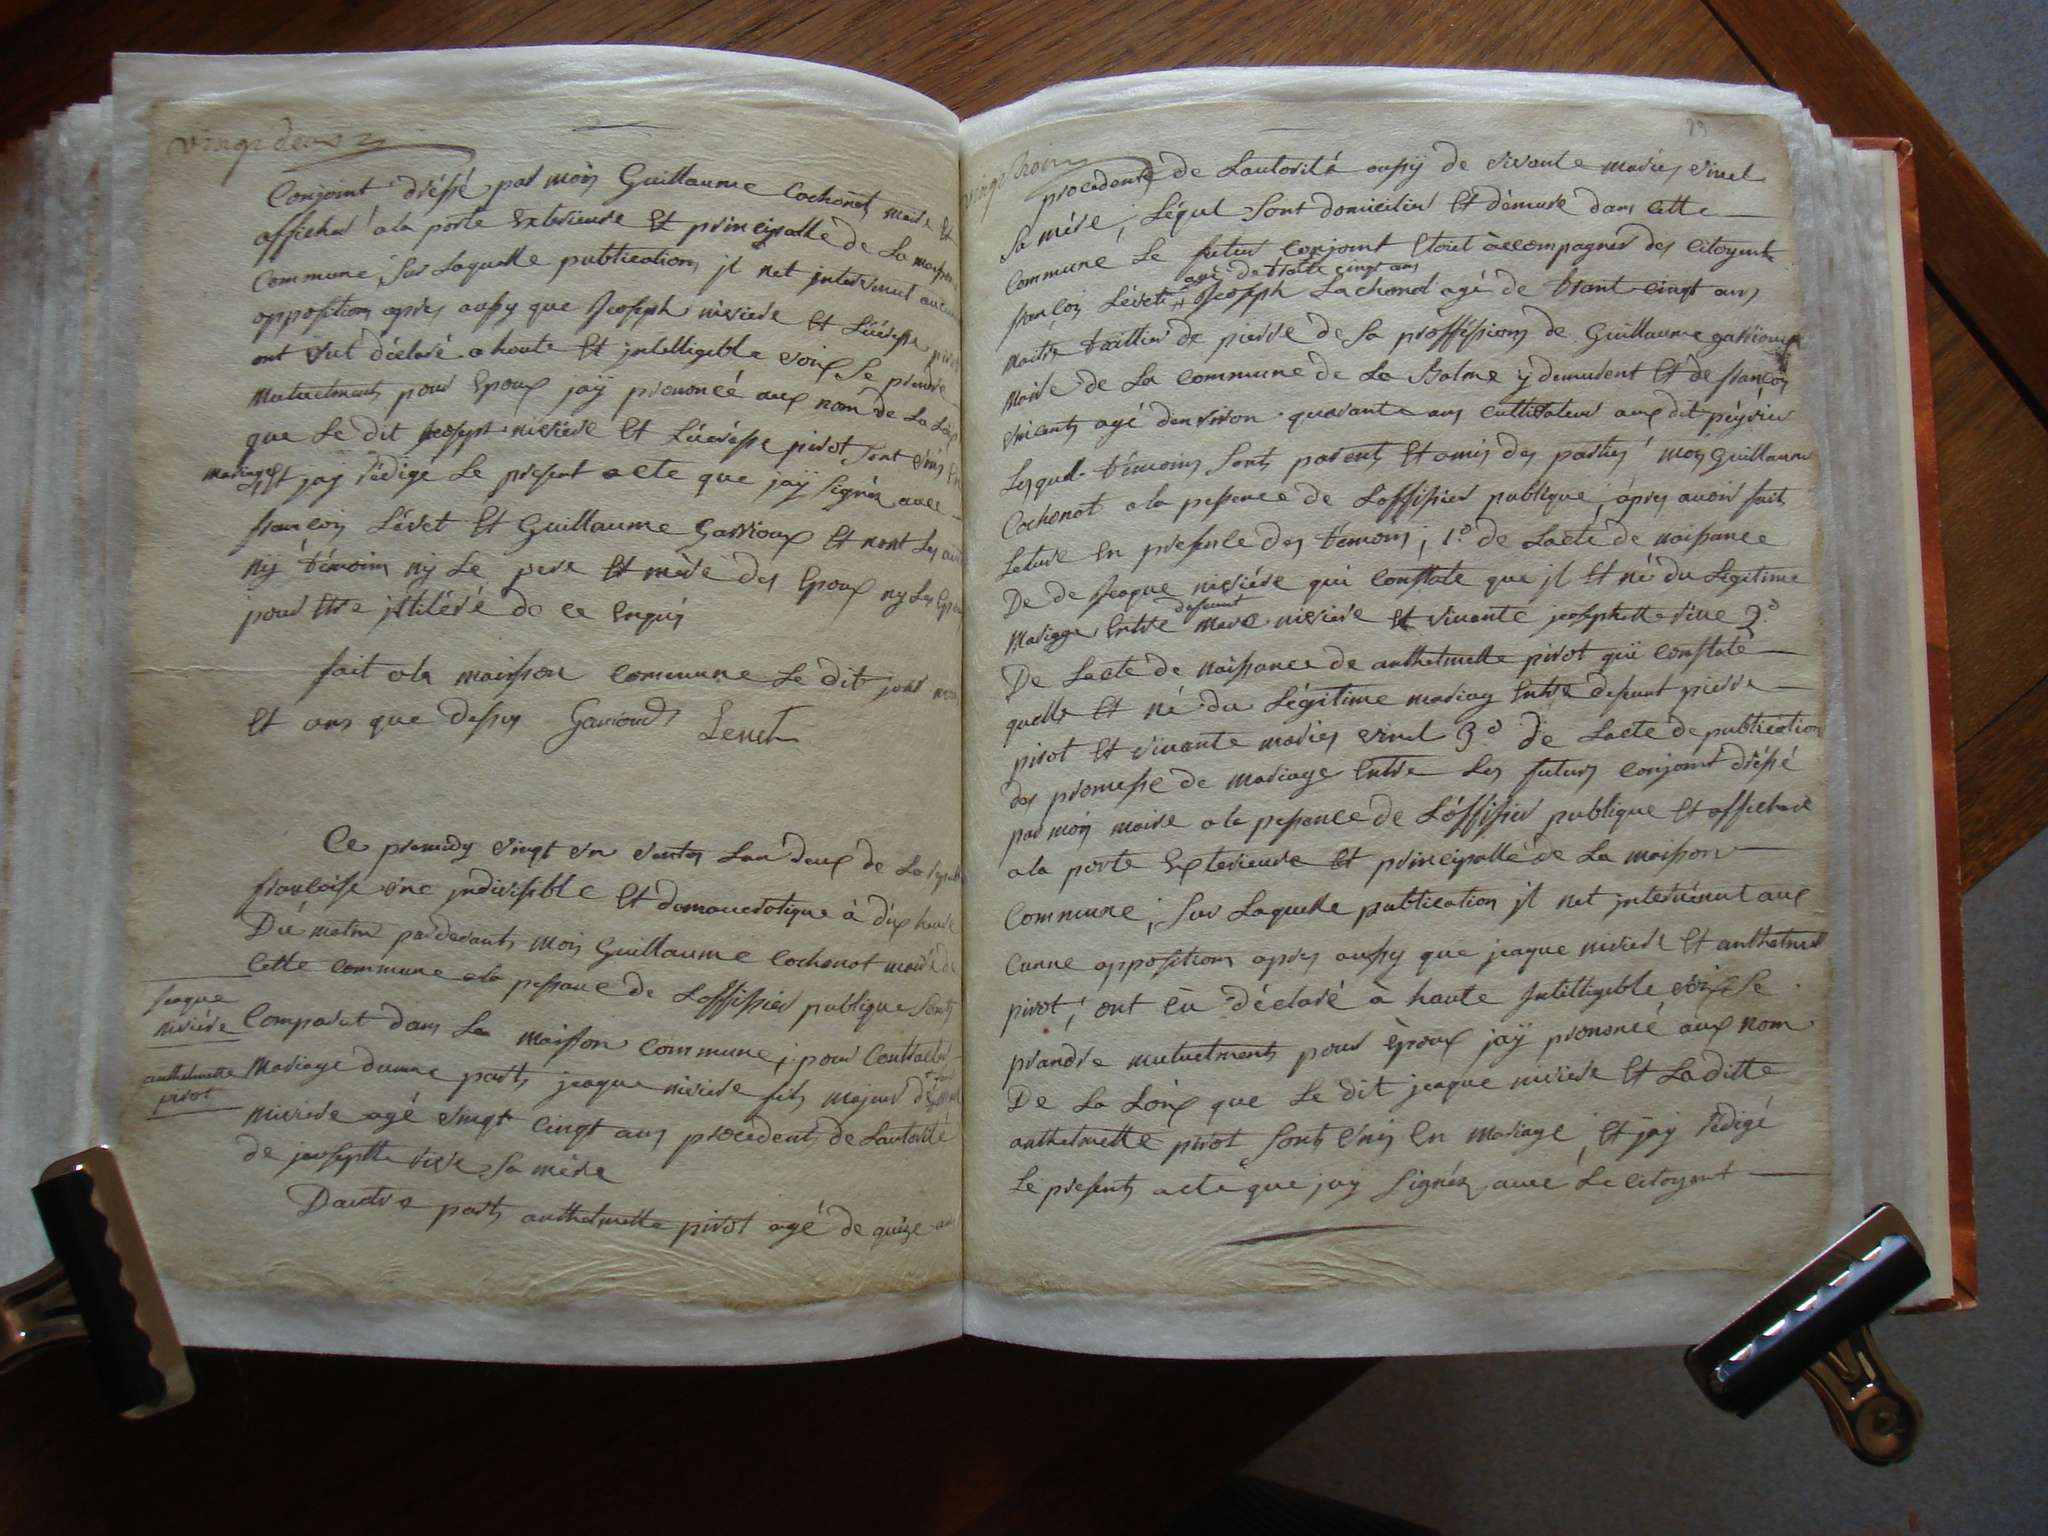 vingt deux
Conjoint dréssé par moy Guillaume Cochonet maire Et
afficher a la porte Exterieure Et principalle de La maison
Commune, Sur Laquelle publications jl net jntervenut aucune
opposition apres aussy que Joseph niviere Et Lucresse pivot
ont Eut déclaré a haute Et jntelligible voix Se prendre
mutuelments pour Epoux jaÿ prononcé aux nom de La Loix
que Le dit joseph niviere Et Lucresse pivot Sont Unis En
mariage Et jaÿ rédigé Le present acte que jaÿ Signéz avec
françois Lévet Et Guillaume Garrioux Et nont Les autres
nÿ témoins nÿ Le pere Et mère des Epoux ny Les Epoux
pour Etre jltiléré de ce Enquis
fait a la maison commune Le dit jour mois
Et ans que dessus Garrioud Levet
Ce premidy vingt un ventos Lan deux de La republique
francoise une jndivisible Et democratique à dix heure
Du matin pardevants moy Guillaume Cochonot maire de
Cette commune a la pessance de Loffissier publique Sont
jeaque
niviére
Comparut dans La maison commune, pour Contracter
anthelmette
pivot
Mariage dunne parts jeaque niviere fils majeur de
niviere agé vingt cingt ans procédents de Lautorité
de josephte vive Sa mère
Dautre parts anthelmette pivot agé de quize ans
23
vingt trois
procedents de Lautorité aussy de vivante maries vinel
Sa mére, Léqul Sont domicilies Et démure dans Cette
Commune Le futur conjoint Etoit accompagner des Citoyents
agé de trente cingt ans
françois Lévet, Joseph Lachonod agé de trant cingt ans
maitre taillier de pierre de Sa proffessions de Guillaume garrioux
maire de La commune de La Balme ÿ demurent Et de françois
vincents agé denviron quarante ans cultivateur aux dit péÿrieu
Lesquel témoins Sonts parents Et amis des parties moy Guillaume
Cochonot a la pessence de Loffissier publique, apres avoir fait
Leture En presence des témoins, 1.º de Lacte de naissance
De de jeaque niviére qui constate que jl Et né du Légitime
deffunt
Mariage Entre marc niviere Et vivante josephette vive 2.º
De Lacte de naissance de anthelmette pivot quï constate
quelle Et né du Légitime mariag Entre deffunt pierre
pivot Et vivante maries vinel 3.º de Lacte de publication
des promesse de mariage Entre Les futurs conjoint dréssé
par moy maire a la pessence de Loffissier publique Et afficharé
a la porte Exterieure Et principalle de La maison
Commune, Sur Laquelle publication jl net jntervénut aux
cunne opposition apres aussy que jeaque niviere Et anthelmet
pivot, ont Eu déclaré à haute Intelligible voix Se
prandre mutuelments pour époux jaÿ prononcé aux nom
De La Loix que Le dit jeaque niviere Et La ditte
anthelmette pivot Sonts Unis En mariage, Et jaÿ rédigé
Le presents acte que jay Signéz avec Le citoyent